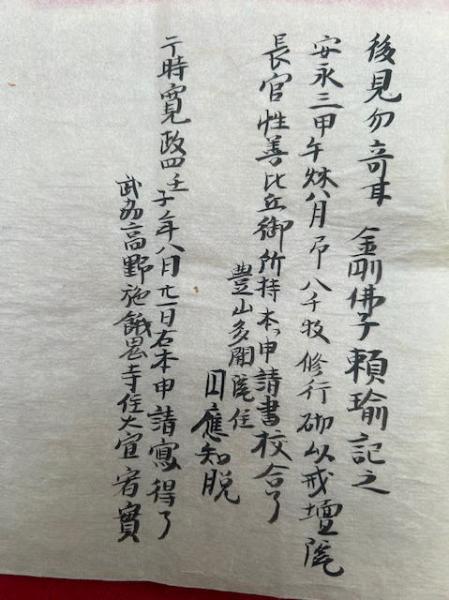 後見勿竒耳 金剛佛子頼瑜記之
安永三甲午秌八月 八千牧修行砌以戒壇院
長官性善比丘御所持本申請書校合了
豊山多聞院住
円應知脱
于時寛政四壬子年八月廿一日右本申請寫得了
武刕高野施餓鬼寺住大宜宥實